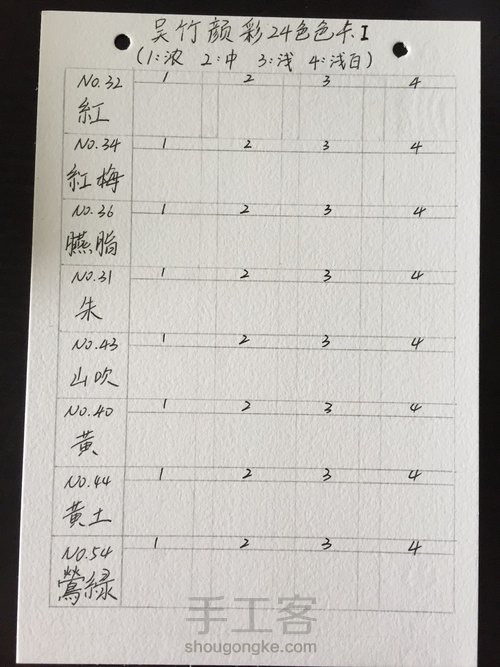 吴竹颜彩24色色卡I
(1:浓 2:中 3:浅 4:浅白)
NO.32 1 2 3 4
紅
NO.34 1 2 3 4
紅梅
NO.36 1 2 3 4
臙脂
NO.31 1 2 3 4
朱
NO.43 1 2 3 4
山吹
NO.40 1 2 3 4
黄
NO.44 1 2 3 4
黄土
NO.54 1 2 3 4
鶯緑
手工客
shougongke.com